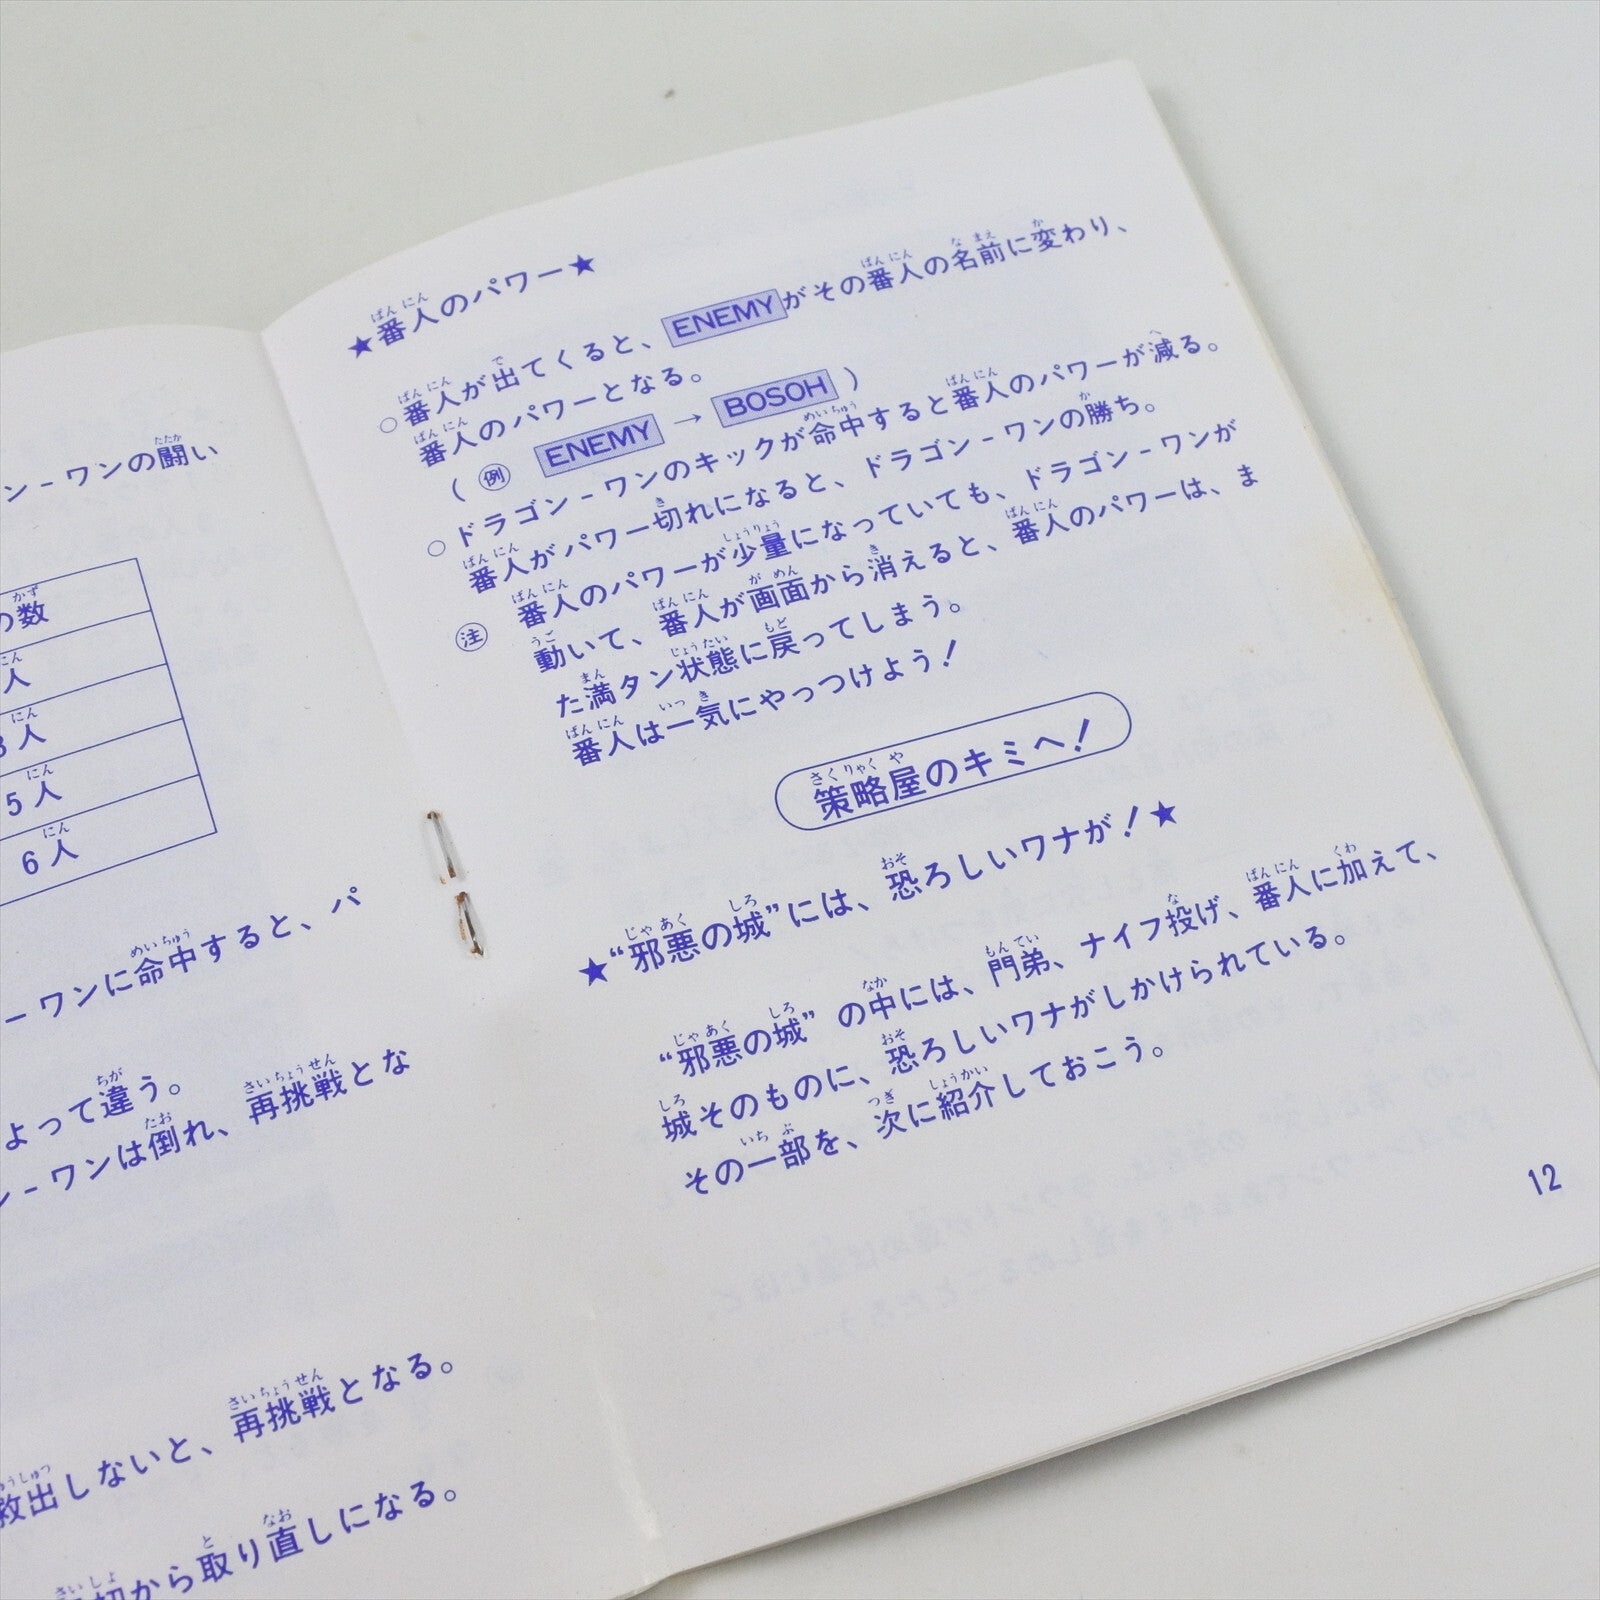 ン-ワンの闘い
の数
人
3人
5人
6人
-ワンに命中すると、パ
よって違う。
ン-ワンは倒れ、再挑戦とな
救出しないと、再挑戦となる。
から取り直しになる。
★番人のパワー★
○番人が出てくると、ENEMYがその番人の名前に変わり、
番人のパワーとなる。
(例 ENEMY → BOSOH )
○ドラゴン-ワンのキックが命中すると番人のパワーが減る。
番人がパワー切れになると、ドラゴン-ワンの勝ち。
注 番人のパワーが少量になっていても、ドラゴン-ワンが
動いて、番人が画面から消えると、番人のパワーは、ま
た満タン状態に戻ってしまう。
番人は一気にやっつけよう!
策略屋のキミへ!
★“邪悪の城”には、恐ろしいワナが!★
“邪悪の城”の中には、門弟、ナイフ投げ、番人に加えて、
城そのものに、恐ろしいワナがしかけられている。
その一部を、次に紹介しておこう。
12